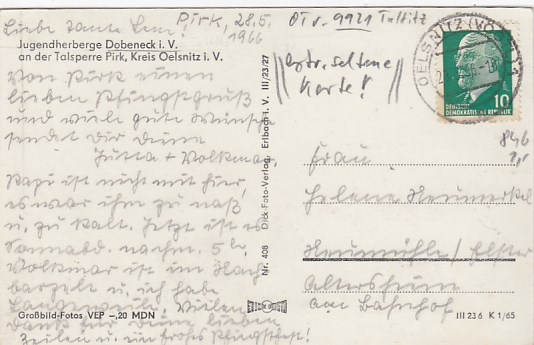 Liebe Tante Leni!
Pirk, 28.5.
1966
OT v. 9921 Taltitz
Jugendherberge Dobeneck i. V.
an der Talsperre Pirk, Kreis Oelsnitz i. V.
Von Pirk einen
lieben Pfingstgruß
und viele gute Wünsche
sendet dir Deine
Jutta + Volkmar.
Papi ist nicht mit hier,
es war ihm zu naß
u. zu kalt. Jetzt ist es
Sonnabd. nachm. 5 Uhr,
Volkmar ist im
u. ich habe
Langeweile. Vielen
Dank für Deine lieben
Zeilen u. ein frohes Pfingstfest!
Großbild-Fotos VEP –,20 MDN
Nr. 408 Dick-Foto-Verlag, Erlbach i. V. III/23/27
extr. seltene
Karte!
OELSNITZ (VOGTL)
DEUTSCHE
DEMOKRATISCHE REPUBLIK
10
Frau
Helene
Neumühle/Elster
Altersheim
am Bahnhof
III 23 6 K 1/65